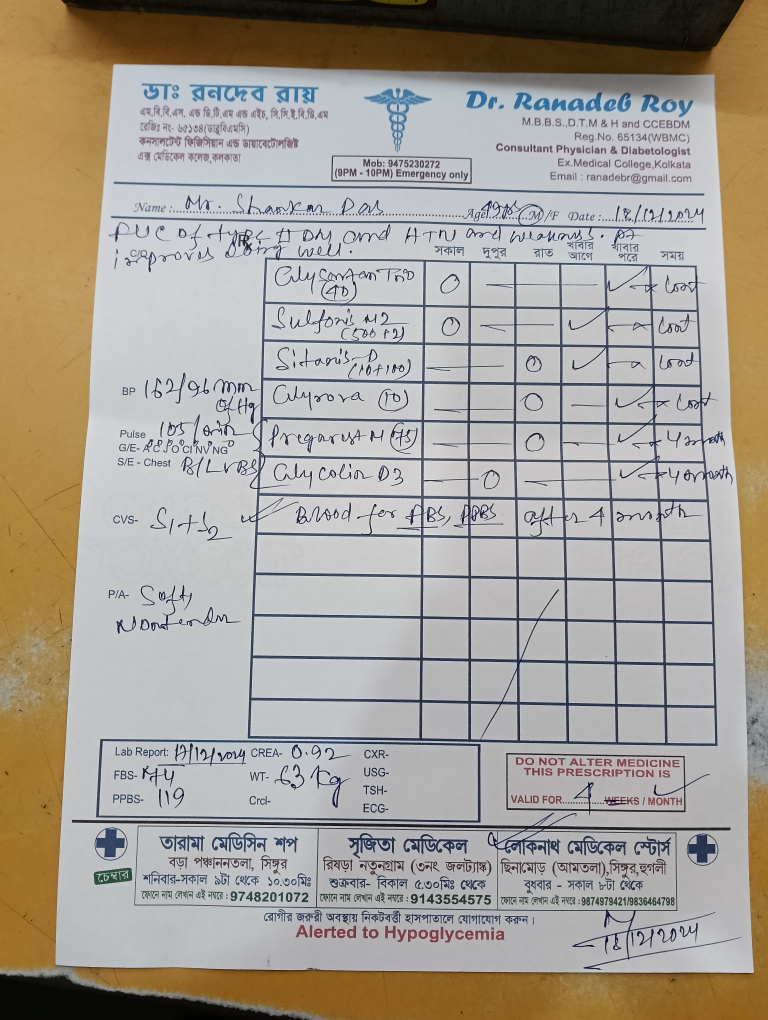 ডাঃ রনদেব রায়
এম.বি.বি.এস, এন্ড ডি.টি.এম এন্ড এইচ, সি.সি.ই.বি.ডি.এম
রেজিঃ নং- ৬৫১৩৪(ডাব্লুবিএমসি)
কনসালটেন্ট ফিজিসিয়ান এন্ড ডায়াবেটোলজিষ্ট
এক্স মেডিকেল কলেজ,কলকাতা
Mob: 9475230272
(9PM - 10PM) Emergency only
Dr. Ranadeb Roy
M.B.B.S.,D.T.M & H and CCEBDM
Reg.No. 65134(WBMC)
Consultant Physician & Diabetologist
Ex.Medical College,Kolkata
Email : ranadebr@gmail.com
Name : Mr. Shankar Das Age 49 M/F Date : 18/12/2024
of type II DM and HTN and weakness. Pt
improves doing well.
C/O
সকাল দুপুর রাত খাবার আগে খাবার পরে সময়
TRIO (40) cont
Sulfonis M2 (500+2) cont
Sitaris D (10+100) cont
BP 162/96 mm of Hg
Glyrova (10) cont
Pulse 105/min
G/E- A C J O CI NV NG
M (75) 4 month
S/E - Chest B/L VBS
D3 4 month
CVS- S1+S2
Blood for FBS, PPBS after 4 month
P/A- Soft, Nontender
Lab Report: 17/12/2024 CREA- 0.92 CXR-
FBS- WT- 63 kg USG-
PPBS- 119 Crcl- TSH-
ECG-
DO NOT ALTER MEDICINE
THIS PRESCRIPTION IS
VALID FOR 4 WEEKS / MONTH
চেম্বার
তারামা মেডিসিন শপ
বড়া পঞ্চাননতলা, সিঙ্গুর
শনিবার-সকাল ৯টা থেকে ১০.৩০মিঃ
ফোনে নাম লেখান এই নম্বরে : 9748201072
সৃজিতা মেডিকেল
রিষড়া নতুনগ্রাম (৩নং জলট্যাঙ্ক)
শুক্রবার- বিকাল ৫.৩০মিঃ থেকে
ফোনে নাম লেখান এই নম্বরে : 9143554575
লোকনাথ মেডিকেল স্টোর্স
ছিনামোড় (আমতলা),সিঙ্গুর,হুগলী
বুধবার - সকাল ৮টা থেকে
ফোনে নাম লেখান এই নম্বরে :9874979421/9836464798
রোগীর জরুরী অবস্থায় নিকটবর্ত্তী হাসপাতালে যোগাযোগ করুন।
Alerted to Hypoglycemia
18/12/2024